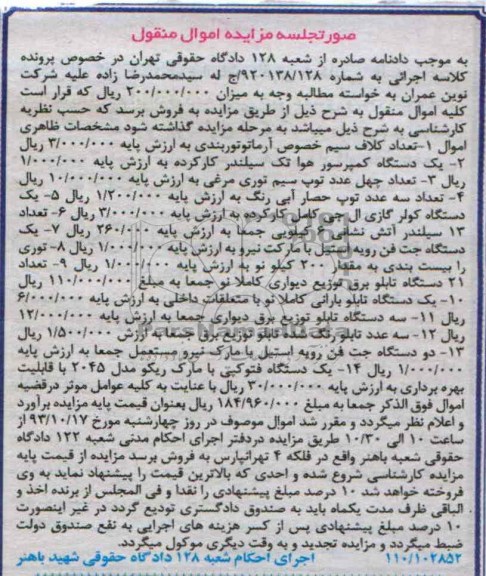 صورتجلسه مزایده اموال منقول
به موجب دادنامه صادره از شعبه ۱۲۸ دادگاه حقوقی تهران در خصوص پرونده
کلاسه اجرائی به شماره ۹۲۰۱۳۸/۱۲۸/ج له سیدمحمدرضا زاده علیه شرکت
نوین عمران به خواسته مطالبه وجه به میزان ۲۰۰/۰۰۰/۰۰۰ ریال که قرار است
کلیه اموال منقول به شرح ذیل از طریق مزایده به فروش برسد که حسب نظریه
کارشناسی به شرح ذیل میباشد به مرحله مزایده گذاشته شود مشخصات ظاهری
اموال ۱-تعداد کلاف سیم خصوص آرماتوربندی به ارزش پایه ۳/۰۰۰/۰۰۰ ریال
۲- یک دستگاه کمپرسور هوا تک سیلندر کارکرده به ارزش پایه ۱/۰۰۰/۰۰۰
ریال ۳- تعداد چهل عدد توپ سیم توری مرغی به ارزش پایه ۱۰/۰۰۰/۰۰۰ ریال
۴- تعداد سه عدد توپ حصار آبی رنگ به ارزش پایه ۱/۲۰۰/۰۰۰ ریال ۵- یک
دستگاه کولر گازی ال جی کامل کارکرده به ارزش پایه ۳/۰۰۰/۰۰۰ ریال ۶- تعداد
۱۳ سیلندر آتش نشانی ۶ کیلویی جمعا به ارزش پایه ۲۶۰/۰۰۰ ریال ۷- یک
دستگاه جت فن رویه استیل با مارکت نیرو به ارزش پایه ۱/۰۰۰/۰۰۰ ریال ۸-توری
را بیست بندی به مقدار ۲۰۰ کیلو نو به ارزش پایه ۱/۰۰۰/۰۰۰ ریال ۹- تعداد
۲۱ دستگاه تابلو برق توزیع دیواری کاملا نو جمعا به مبلغ ۱۱۰/۰۰۰/۰۰۰ ریال
۱۰- یک دستگاه تابلو بارانی کاملا نو با متعلقات داخلی به ارزش پایه ۶/۰۰۰/۰۰۰
ریال ۱۱- سه دستگاه تابلو توزیع برق دیواری جمعا به ارزش پایه ۱۲/۰۰۰/۰۰۰
ریال ۱۲- سه عدد تابلو رنگ شده تابلو توزیع برق جمعا به ارزش ۱/۵۰۰/۰۰۰ ریال
۱۳- دو دستگاه جت فن رویه استیل با مارک نیرو مستعمل جمعا به ارزش پایه
۱/۰۰۰/۰۰۰ ریال ۱۴- یک دستگاه فتوکپی با مارک ریکو مدل ۲۰۴۵ با قابلیت
بهره برداری به ارزش پایه ۳۰/۰۰۰/۰۰۰ ریال با عنایت به کلیه عوامل موثر درقضیه
اموال فوق الذکر جمعا به مبلغ ۱۸۴/۹۶۰/۰۰۰ ریال بعنوان قیمت پایه مزایده برآورد
و اعلام نظر میگردد و مقرر شد اموال موصوف در روز چهارشنبه مورخ ۹۳/۱۰/۱۷ از
ساعت ۱۰ الی ۱۰/۳۰ طریق مزایده دردفتر اجرای احکام مدنی شعبه ۱۲۲ دادگاه
حقوقی شعبه باهنر واقع در فلکه ۴ تهرانپارس به فروش برسد مزایده از قیمت پایه
مزایده کارشناسی شروع شده و احدی که بالاترین قیمت را پیشنهاد نماید به وی
فروخته خواهد شد ۱۰ درصد مبلغ پیشنهادی را نقدا و فی المجلس از برنده اخذ و
الباقی ظرف مدت یکماه باید به صندوق دادگستری تودیع گردد در غیر اینصورت
۱۰ درصد مبلغ پیشنهادی پس از کسر هزینه های اجرایی به نفع صندوق دولت
ضبط میگردد و مزایده تجدید و به وقت دیگری موکول میگردد.
۱۱۰/۱۰۲۸۵۲ اجرای احکام شعبه ۱۲۸ دادگاه حقوقی شهید باهنر